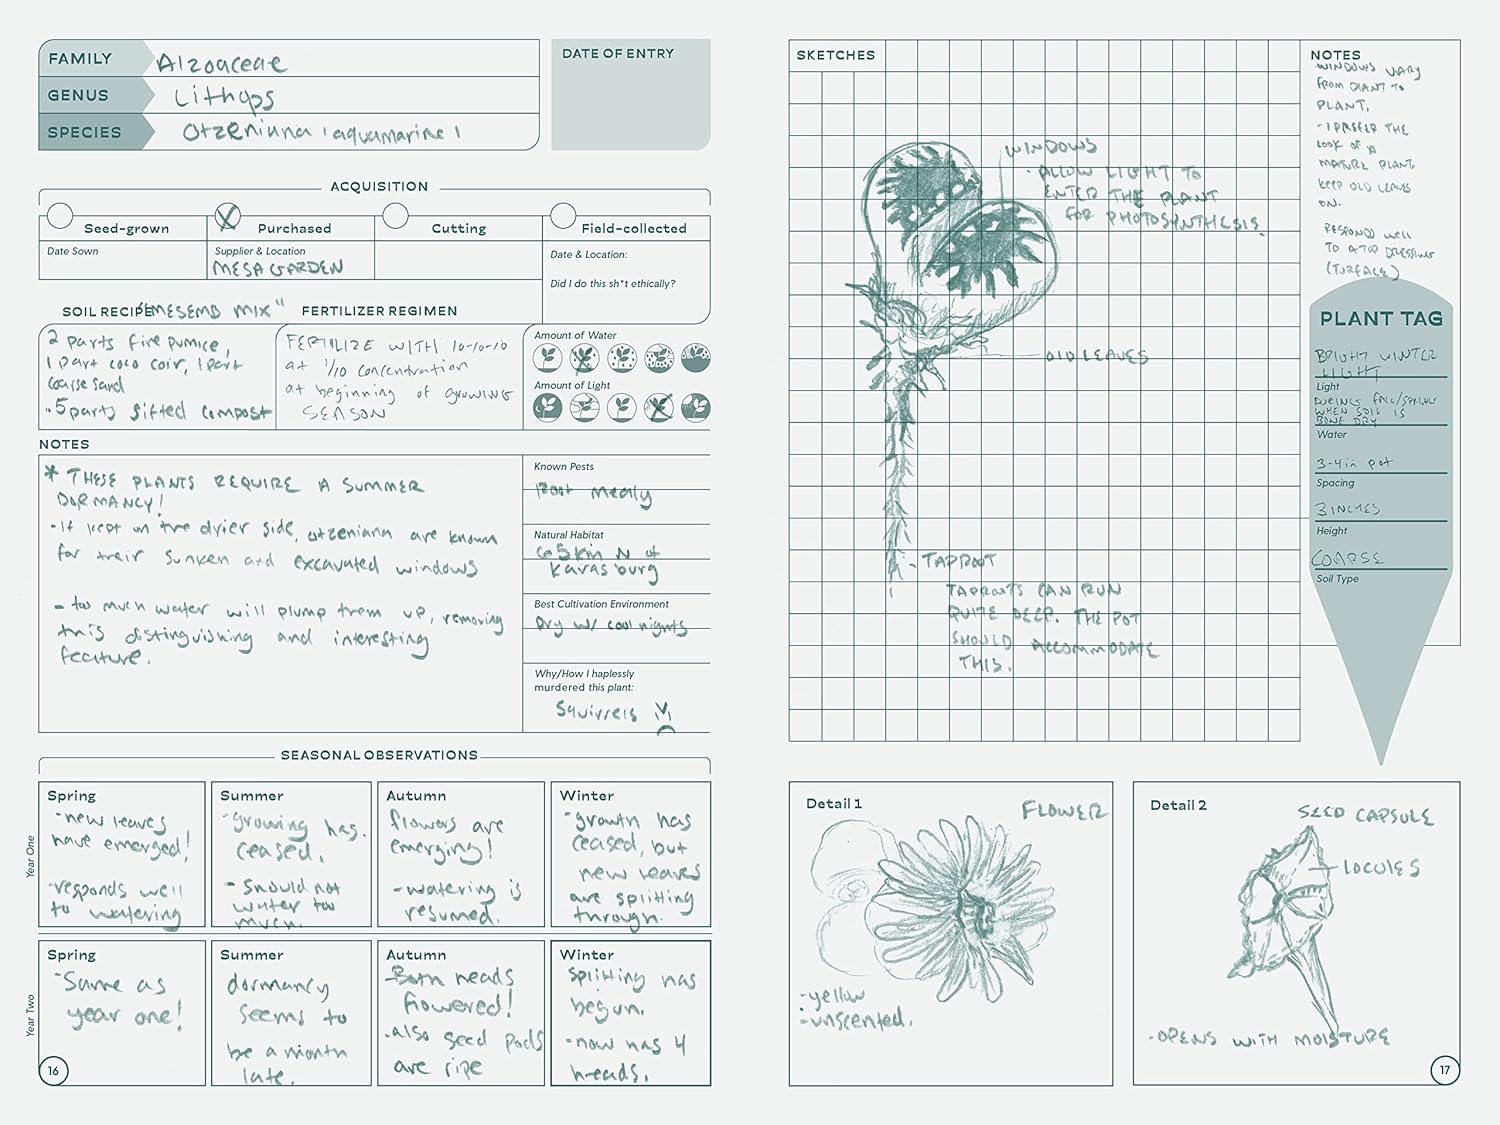 FAMILY Aizoaceae
GENUS Lithops
SPECIES Otzeniana 'aquamarine'
DATE OF ENTRY
ACQUISITION
Seed-grown
Date Sown
Purchased
Supplier & Location
MESA GARDEN
Cutting
Field-collected
Date & Location:
Did I do this sh*t ethically?
SOIL RECIPE "MESEMB MIX"
2 parts fine pumice,
1 part coco coir, 1 part
coarse sand
.5 parts sifted compost
FERTILIZER REGIMEN
FERTILIZE WITH 10-10-10
at 1/10 concentration
at beginning of growing
SEASON
Amount of Water
Amount of Light
NOTES
* THESE PLANTS REQUIRE A SUMMER
DORMANCY!
- If kept on the dryer side, otzeniana are known
for their sunken and excavated windows
- too much water will plump them up, removing
this distinguishing and interesting
feature.
Known Pests
Root mealy
Natural Habitat
65km N of
Karasburg
Best Cultivation Environment
Dry w/ cool nights
Why/How I haplessly
murdered this plant:
Squirrels
SEASONAL OBSERVATIONS
Year One
Spring
- new leaves
have emerged!
- responds well
to watering
Summer
- growing has
ceased.
- Should not
water too
much.
Autumn
flowers are
emerging!
- watering is
resumed.
Winter
- growth has
ceased, but
new leaves
are splitting
through.
Year Two
Spring
- Same as
year one!
Summer
dormancy
seems to
be a month
late.
Autumn
Both heads
flowered!
- also seed pods
are ripe
Winter
Splitting has
begun.
- now has 4
heads.
16
SKETCHES
WINDOWS
- ALLOW LIGHT TO
ENTER THE PLANT
FOR PHOTOSYNTHESIS.
OLD LEAVES
- TAPROOT
TAPROOTS CAN RUN
QUITE DEEP. THE POT
SHOULD ACCOMMODATE
THIS.
NOTES
WINDOWS VARY
FROM PLANT TO
PLANT.
- I PREFER THE
LOOK OF A
MATURE PLANT.
KEEP OLD LEAVES
ON.
RESPONDS WELL
TO A TOP DRESSING
(TURFACE)
PLANT TAG
BRIGHT WINTER
LIGHT
Light
DURING FALL/SPRING
WHEN SOIL IS
BONE DRY
Water
3-4in pot
Spacing
3 INCHES
Height
COARSE
Soil Type
Detail 1
FLOWER
- yellow
- unscented.
Detail 2
SEED CAPSULE
LOCULES
- OPENS WITH MOISTURE
17